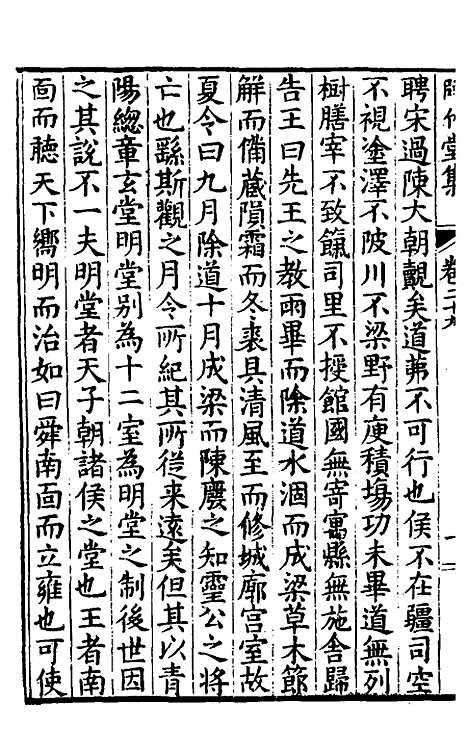 卷二十九
聘宋過陳大朝覿矣道茀不可行也侯不在疆司空
不視塗澤不陂川不梁野有庾積塲功未畢道無列
樹膳宰不致餼司里不授館國無寄寓縣無施舎歸
告王曰先王之教雨畢而除道水涸而成梁草木節
解而偹藏隕霜而冬裘具清風至而修城郭宫室故
夏令曰九月除道十月成梁而陳廢之知靈公之將
亡也繇斯觀之月令所紀其所從来遠矣但其以青
陽總章玄堂明堂别為十二室為明堂之制後世因
之其說不一夫明堂者天子朝諸侯之堂也王者南
面而聽天下嚮明而治如曰舜南面而立雍也可使